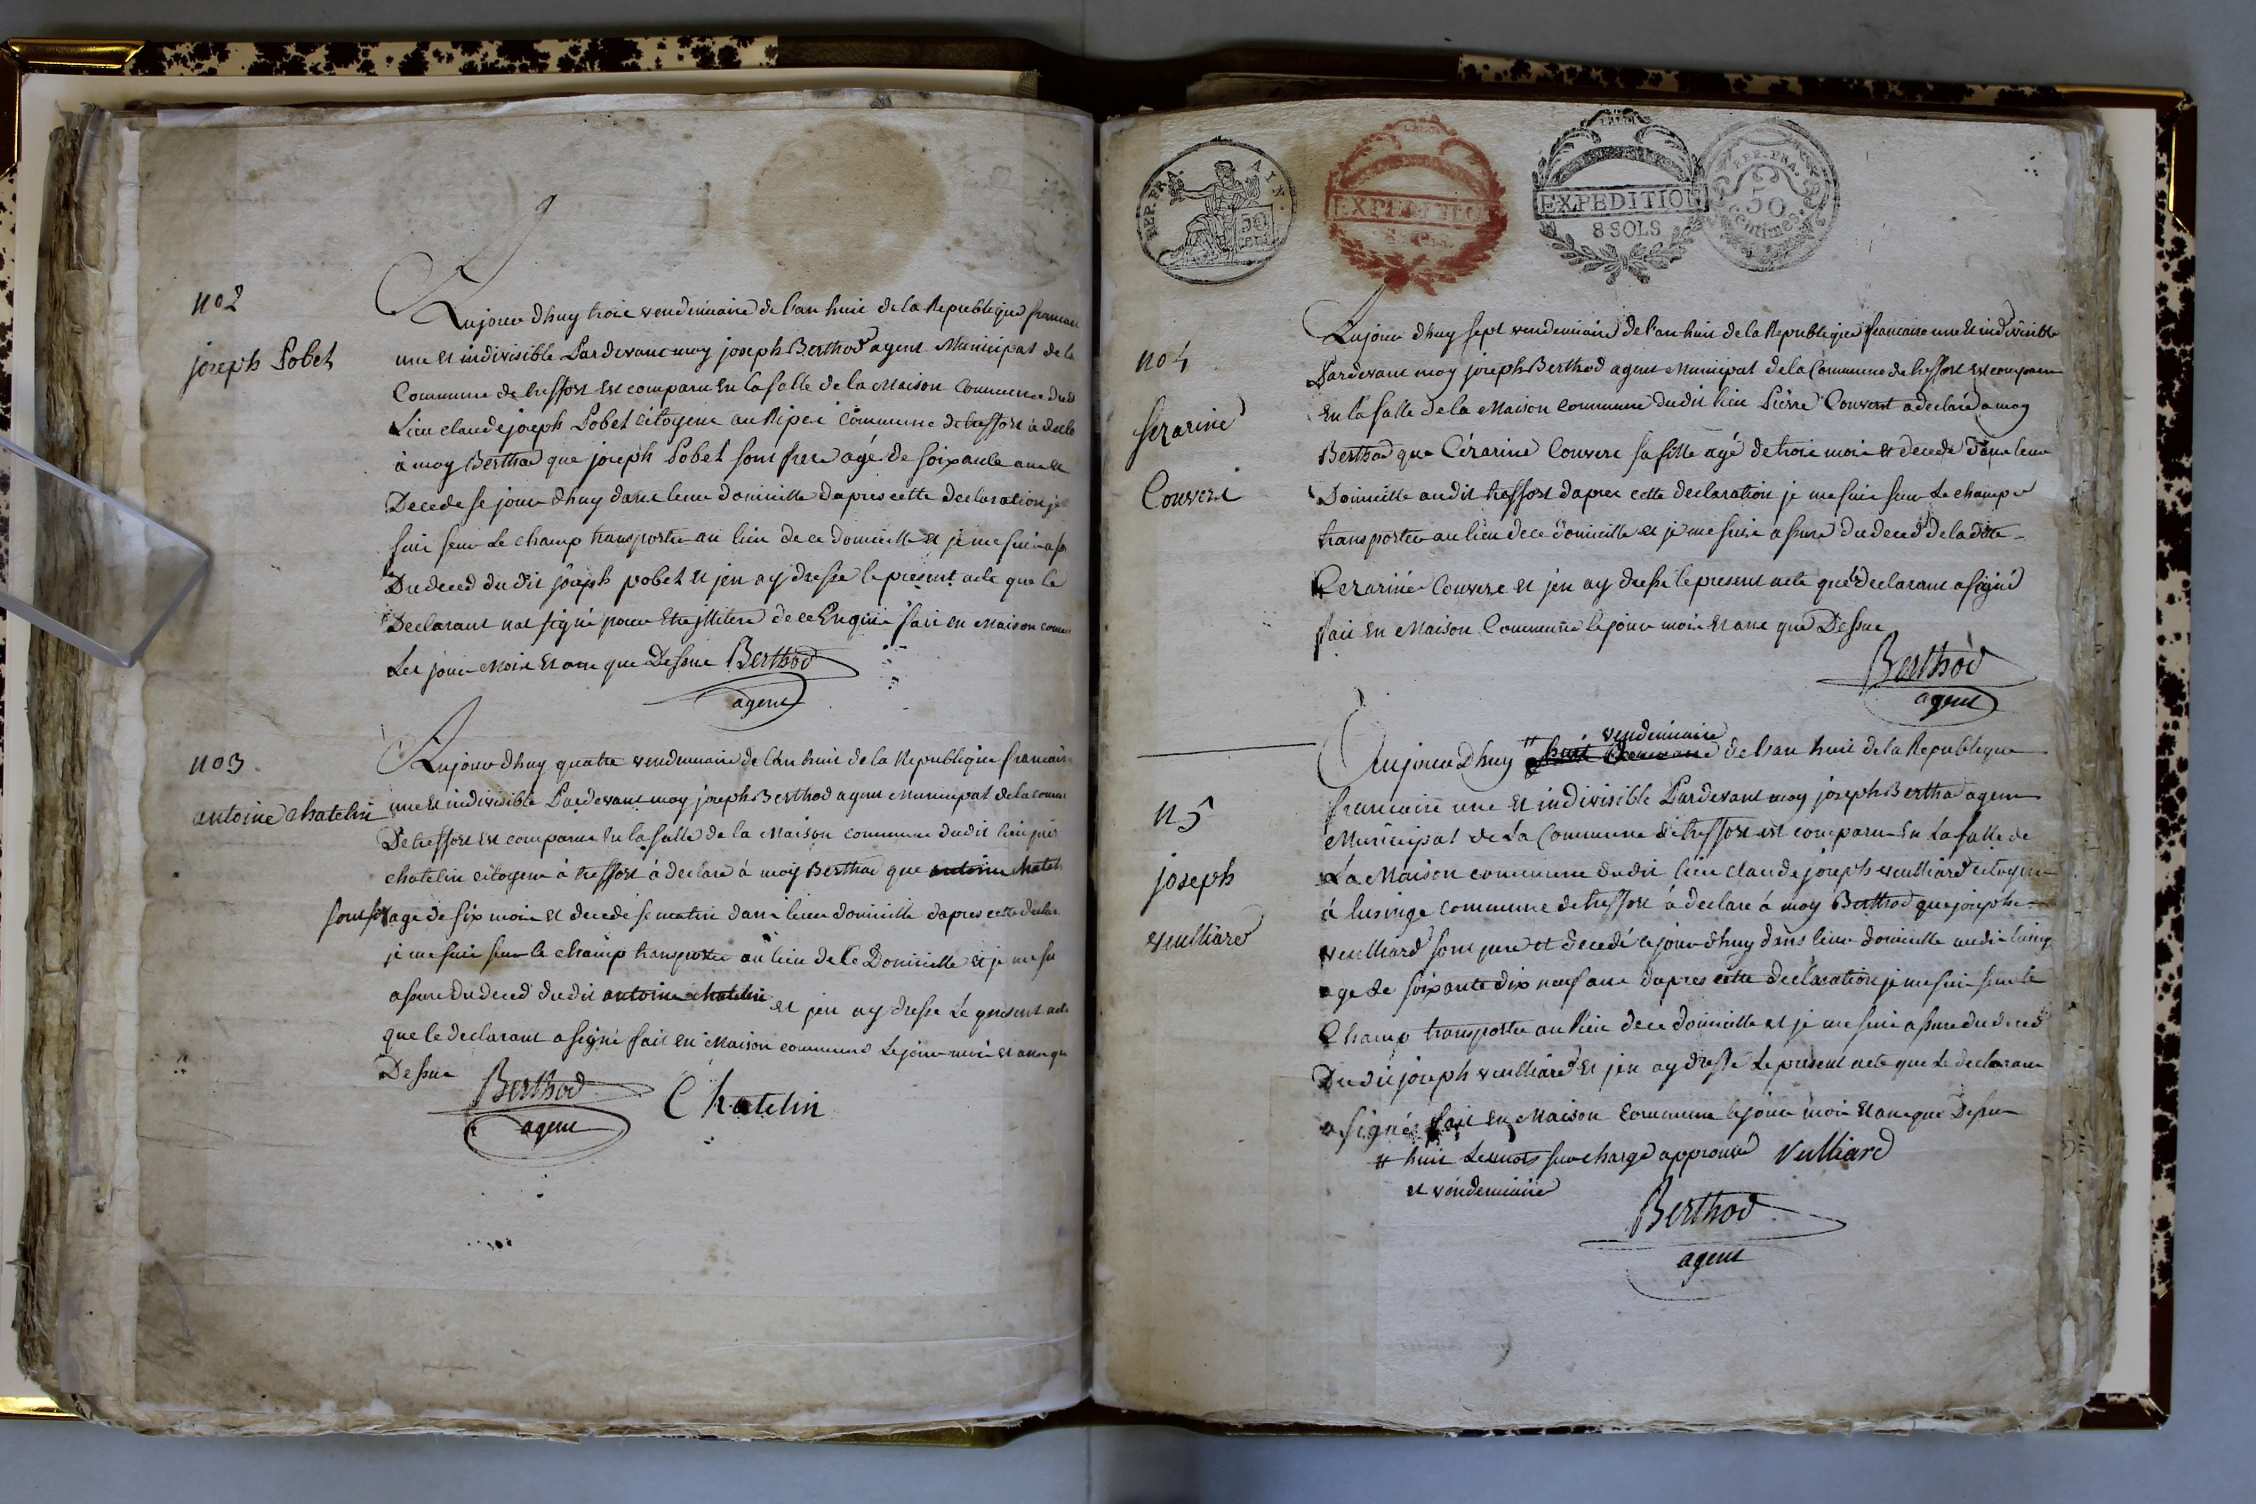 no 2
joseph Pobel
Aujour dhuy troie vendemiaire de l'an huit de la Republique francais
une et indivisible Pardevant moy joseph Berthod agent Municipal de la
Commune de tressort est comparu En la salle de la Maison Commune dudit
Lieu claude joseph Pobel citoyene au Commune de tressort a decla
à moy Berthod que joseph Pobel sont frere agé de soixante ans et
Decede se jour dhuy dans leur domicille dapres cette declaration je
suis seur Le champ transportee au lieu de ce domicille et je me suis assu
Du deced du dit joseph pobel et jen ay dresse le present acte que le
Declarant nat signé pour de ce Enquie fait en Maison comm
Les jour Mois et ane que Dessue Berthod
agent
no 3
antoine chatelin
Aujour dhuy quatre vendemiaire de l'An huit de la Republique francais
une et indivisible Pardevant moy joseph Berthod agent Municipal de la comm
De tressort est comparu En la salle de la Maison commune dudit lieu
chatelin citoyene à tressort à declaré à moy Berthod que antoine chatel
sont age de six mois et decedé se matin dans leur domicille dapres cette declar
je me suis seur le champ transportee au lieu de Ce Domicille et je me su
assure du deced du dit antoine chatelin et jen ay dresse Le present acte
que le declarant a signé fait en Maison commune Le jour mois et ane que
Dessue
Berthod
agent
Chatelin
REP. FRA. AIN.
50 cent
EXPEDITION
EXPEDITION
8 SOLS
REP. FRA.
50
centimes
no 4
serarine
Couvert
Aujour dhuy sept vendemiaire de l'an huit de la Republique francaise une et indivisible
Pardevant moy joseph Berthod agent Municipal de la Commune de tressort est comparu
En la salle de la Maison commune dudit lieu Pierre Couvert a declaré a moy
Berthod que Cérarine Couvert sa fille agé de troie mois et decede dans leur
Domicille audit tressort dapres cette declaration je me suis seur Le champ
transportee au lieu de ce domicille et je me suis assure du deced de la dite
Cerarine Couvert et jen ay dresse le present acte que declarant a signé
fait En Maison Commune le jour mois et ane que Dessue
Berthod
agent
n 5
joseph
veulliard
vendemiaire
Aujour Dhuy # de l'an huit de la Republique
francaise une et indivisible Pardevant moy joseph Berthod agent
Municipal de La Commune de tressort est comparu En La salle de
La Maison commune dudit lieu claude joseph veulliard citoyene
à lusinge commune de tressort à declaré à moy Berthod que joseph
veulliard sont pere et decedé ce jour dhuy dans leur domicille audit
age de soixante dix neuf ane dapres cette declaration je me suis seur le
Champ transportee au lieu de ce domicille et je me suis assure du deced
Du dit joseph veulliard et jen ay dresse Le present acte que Le declarant
a signé fait en Maison Commune le jour mois et ane que Dessue
# huit Les mots sur chargé approuvé Vulliard
et vendemiaire
Berthod
agent